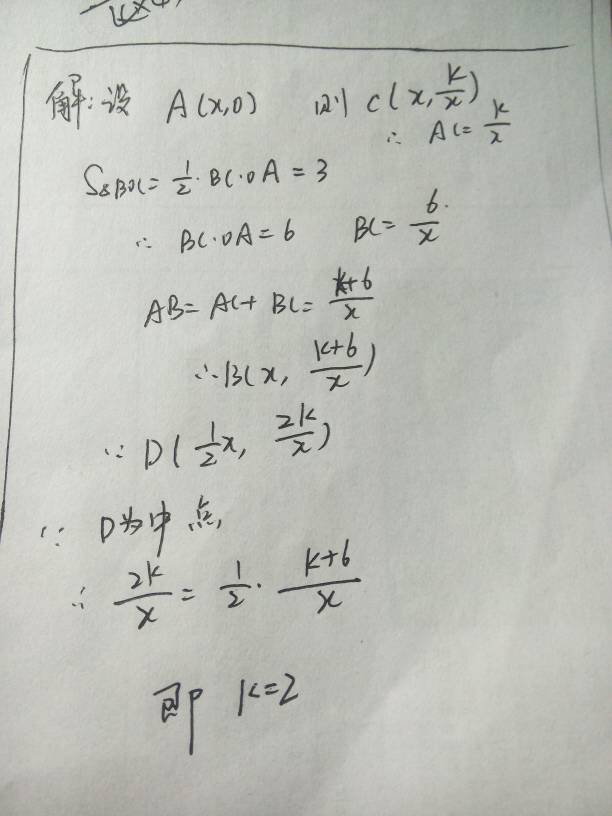 解:设 A(x,0) 则 C(x, k/x)
∴ AC= k/x
S△BOC= 1/2 · BC·OA = 3
∴ BC·OA=6 BC= 6/x
AB= AC+ BC= k+6/x
∴B(x, k+6/x)
∵ D( 1/2 x, 2k/x)
∵ D为中点,
∴ 2k/x = 1/2 · k+6/x
即 k=2